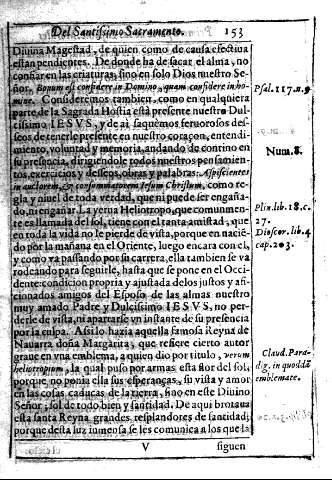 Del Santissimo Sacramento. 153
Diuina Magestad, de quien como de causa efectiua
están pendientes. De donde ha de sacar el alma, no
confiar en las criaturas, sino en solo Dios nuestro Se-
ñor. Bonum est confidere in Domino, quam confidere in ho-
mine. Consideremos tambien, como en qualquiera
parte de la Sagrada Hostia està presente nuestro Dul-
cissimo IESVS, y de ai saquemos feruorosos des-
seos de tenerle presente en nuestro coraçon, entendi-
miento, voluntad y memoria, andando de contino en
su presencia, dirigiendole todos nuestros pensamien-
tos, exercicios y desseos, obras y palabras. Aspicientes
in auctorem, & consummatorem Iesum Christum, como re-
gla y niuel de toda verdad, que ni puede ser engaña-
do, ni engañar. La yerua Heliotropo, que comunmen-
te es llamada del sol, tiene con el tanta amistad, que
en toda la vida no le pierde de vista, porque en nacié-
do por la mañana en el Oriente, luego encara con el,
y como va passando por su carrera, ella tambien se va
rodeando para seguirle, hasta que se pone en el Occi-
dente: condicion propria y ajustada de los justos y afi-
cionados amigos del Esposo de las almas nuestro
muy amado Padre y Dulcissimo IESVS, no per-
derle de vista, ni apartarse vn instante de su presencia
por la culpa. Assi lo hazia aquella famosa Reyna de
Nauarra doña Margarita, que refiere cierto autor
graue en vna emblema, a quien dio por titulo, verum
heliotropium, la qual puso por armas esta flor del sol,
porque no ponia ella sus esperanças, su vista y amor
en las cosas caducas de la tierra, sino en este Diuino
Señor, sol de todo bien y santidad. De aqui brotaua
esta santa Reyna grandes resplandores de santidad;
porque desta luz inmensa se les comunica a los que la
V siguen
Psal. 117. n. 9
Num. 8.
Plin. lib. 18. c.
27.
Dioscor. lib. 4
cap. 203.
Claud. Para-
dig. in quodã
emblemate.